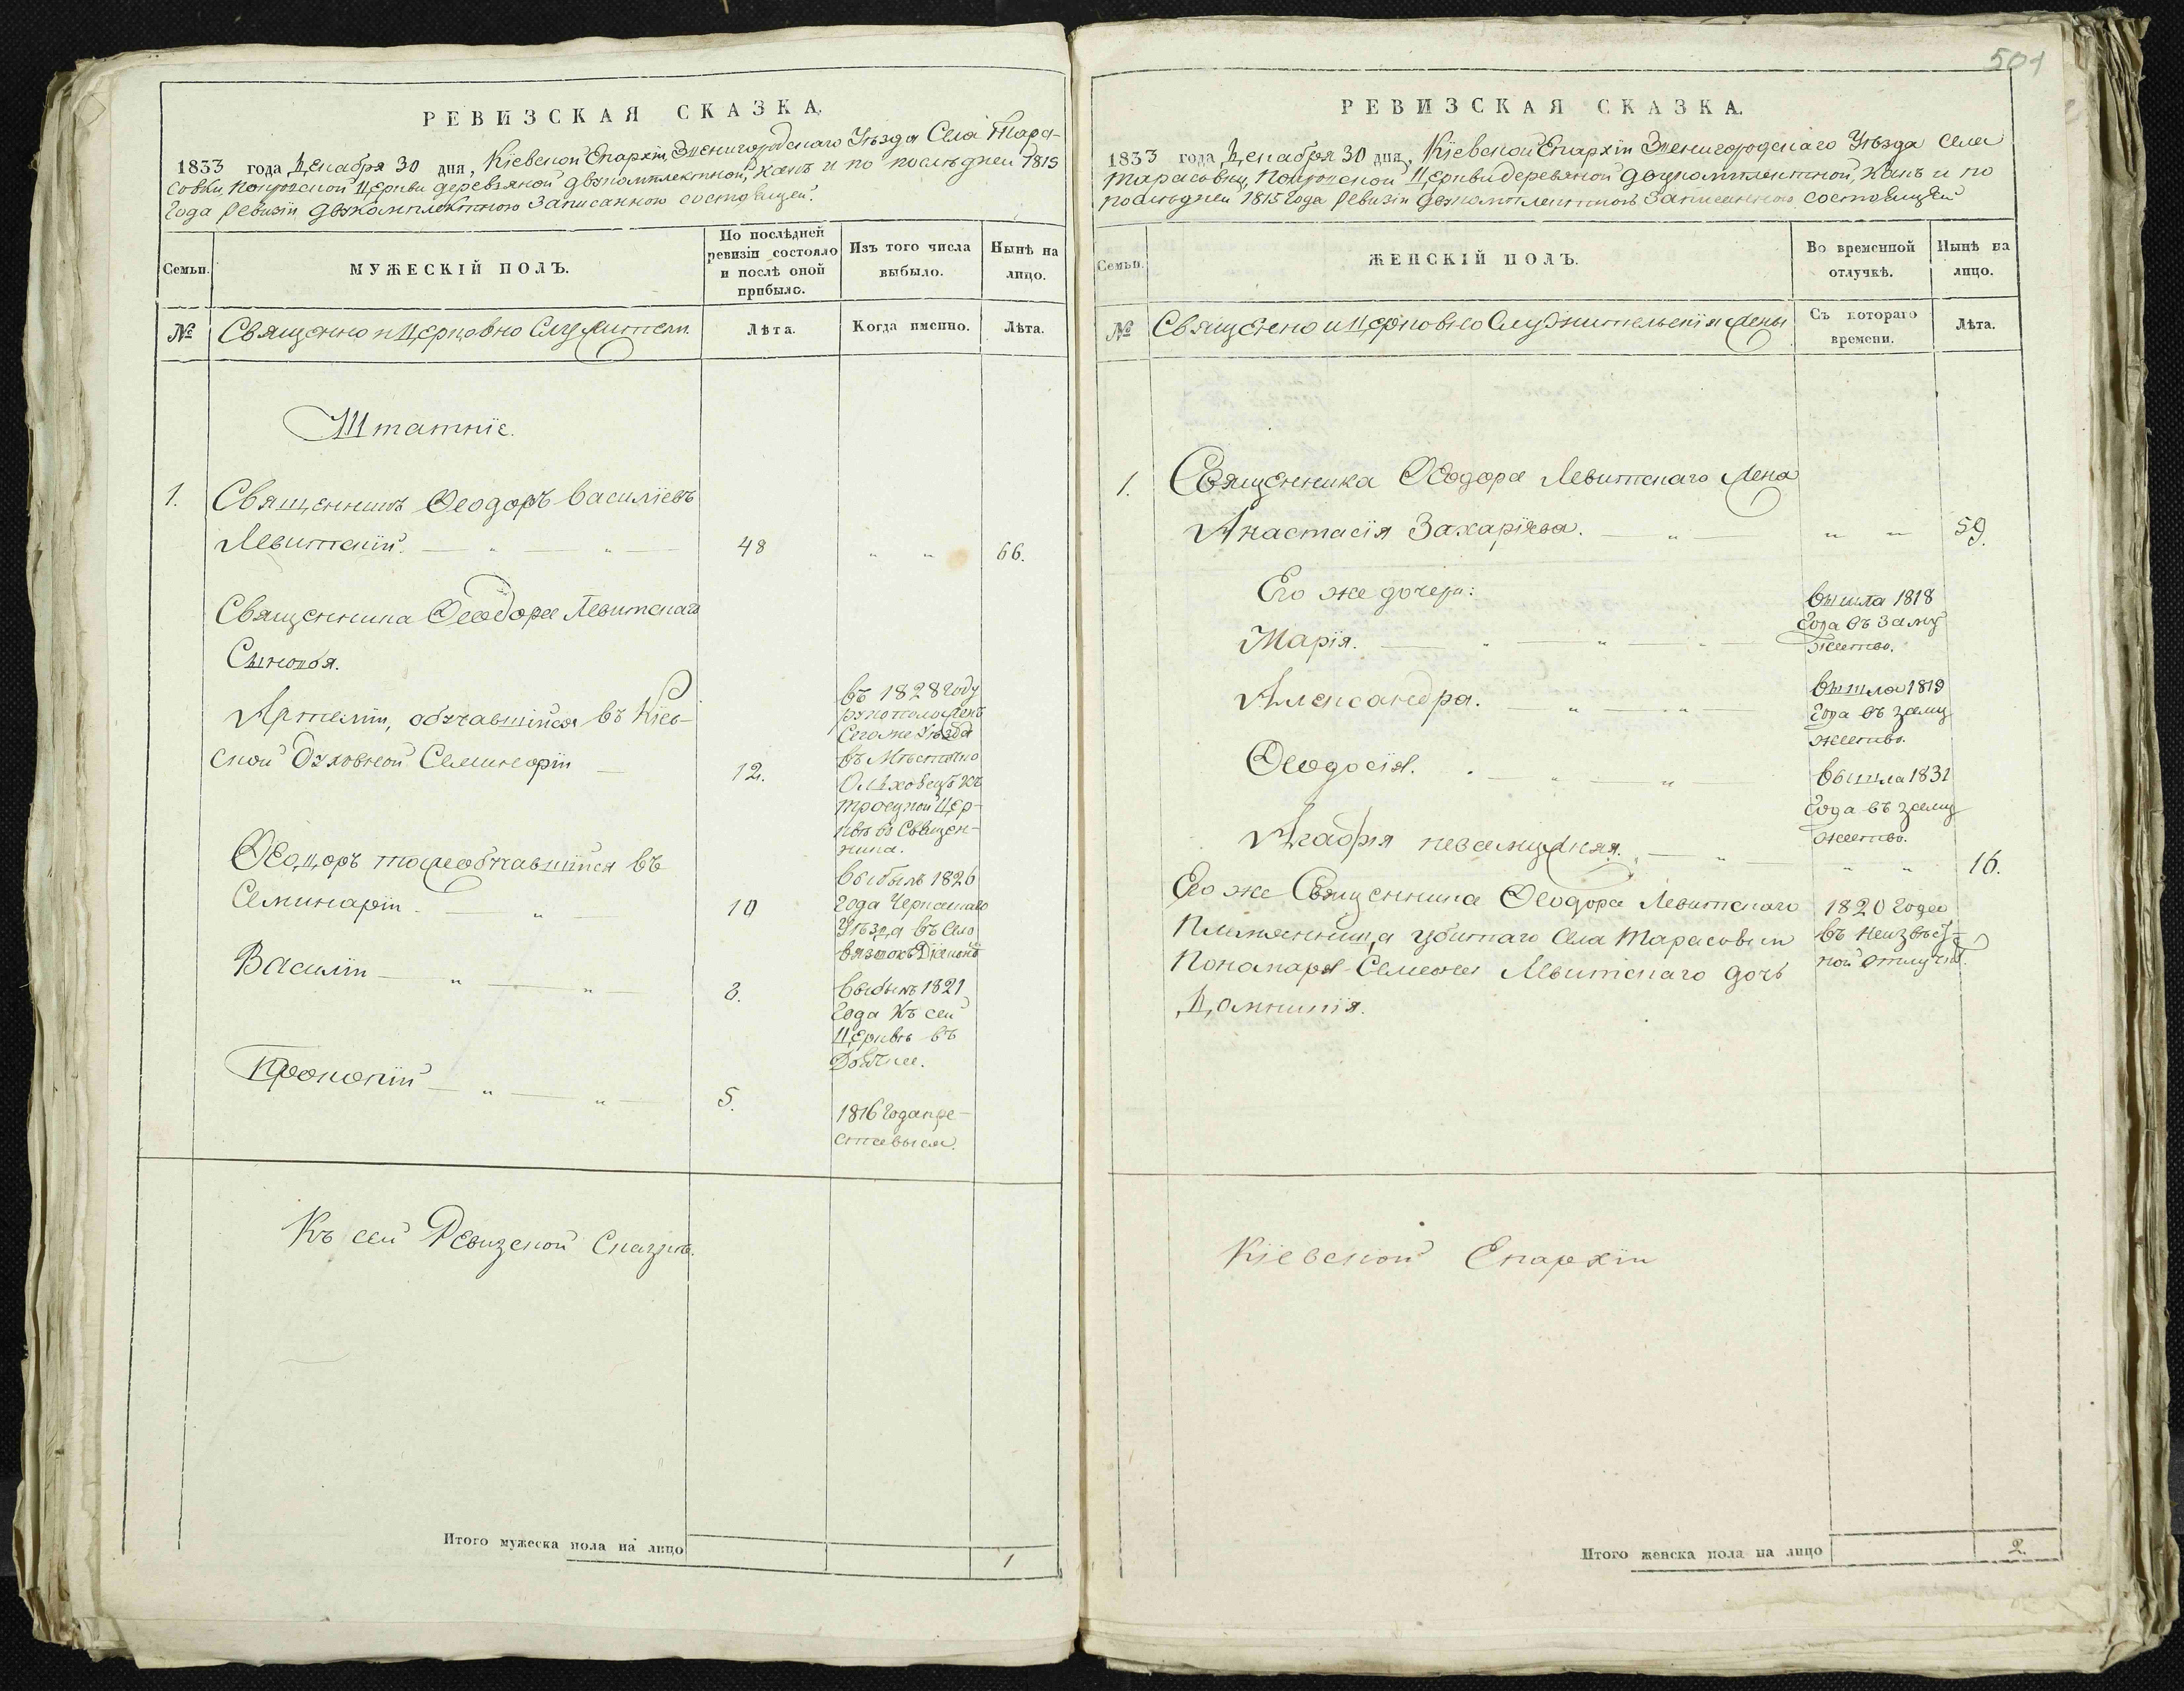 РЕВИЗСКАЯ СКАЗКА.
1833 года Декабря 30 дня, Кіевской Епархіи, Звенигородскаго Уѣзда Села Тара-
совки, Покровской Церкви деревяной двукомплектной, какъ и по послѣдней 1815
года ревизіи двукомплектною записанною состоящей.
Семьи.
МУЖЕСКІЙ ПОЛЪ.
По послѣдней
ревизіи состояло
и послѣ оной
прибыло.
Изъ того числа
выбыло.
Нынѣ на
лицо.
№
Священно и Церковно Служители.
Лѣта.
Когда именно.
Лѣта.
Штатніе.
1.
Священникъ Ѳеодоръ Василіевъ
Левитскій. 48 " " 66.
Священника Ѳеодора Левитскаго
Сыновья.
Артемій, обучавшійся въ Кіев-
ской Духовной Семинаріи 12.
въ 1828 году
рукоположенъ
Сегоже Уѣзда
въ Мѣстечко
Ольховецъ къ
Троецкой Цер-
квѣ въ Священ-
ника.
Ѳеодоръ тожеобучавшійся въ
Семинаріи. 10
выбылъ 1826
года Черкаскаго
Уѣзда въ село
Вязокъ Діякономъ
Василій 8.
выбылъ 1821
года Къ сей
Церквѣ въ
Дьячка.
Прокопій 5.
1816 года пре-
ставился.
Къ сей Ревизской Сказкѣ.
Итого мужеска пола на лицо
1
501
РЕВИЗСКАЯ СКАЗКА.
1833 года Декабря 30 дня, Кіевской Епархіи Звенигородскаго Уѣзда села
Тарасовки, Покровской Церкви деревяной двукомплектной, какъ и по
послѣдней 1815 года ревизіи двукомплектною записанною состоящей
Семьи.
ЖЕНСКІЙ ПОЛЪ.
Во временной
отлучкѣ.
Нынѣ на
лицо.
№
Священно и Церковно Служительскія жены
Съ котораго
времени.
Лѣта.
1.
Священника Ѳеодора Левитскаго жена
Анастасія Захаріева. " " 59.
Его же дочери:
Марія.
вышла 1818
года въ заму
жество.
Александра.
вышла 1819
года въ заму
жество.
Ѳеодосія.
вышла 1831
года въ заму
жество.
Агафія незамужняя. " " 16.
Его же Священника Ѳеодора Левитскаго
Племянника убитаго села Тарасовки
Пономаря Семена Левитскаго дочь
Домникія.
1820 года
въ неизвѣст
ной отлучкѣ.
Кіевской Епархіи
Итого женска пола на лицо
2.